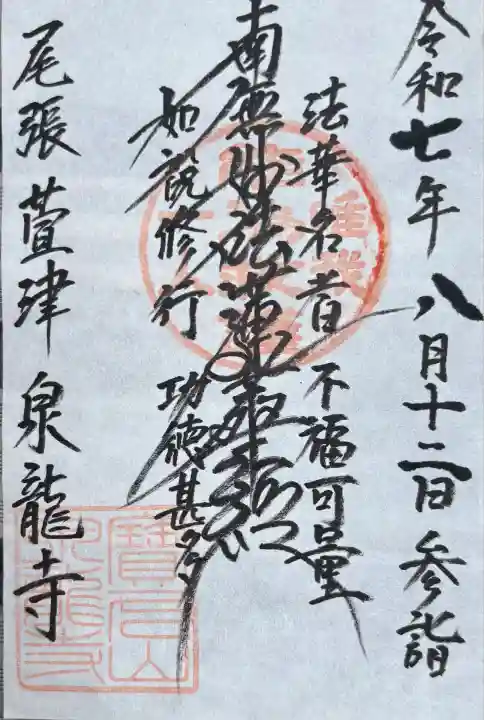 令和七年 八月十二日 参詣
法華名者 不福可量
南無妙法蓮華経
如説修行 功徳甚多
尾張 萱津 泉龍寺